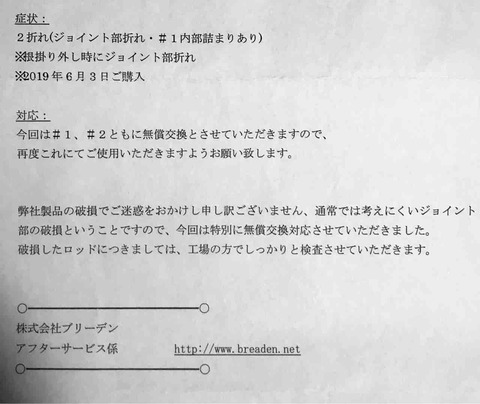 症状：
２折れ(ジョイント部折れ・＃１内部詰まりあり)
※根掛り外し時にジョイント部折れ
※2019年６月３日ご購入
対応：
今回は＃１、＃２ともに無償交換とさせていただきますので、
再度これにてご使用いただきますようお願い致します。
弊社製品の破損でご迷惑をおかけし申し訳ございません、通常では考えにくいジョイント
部の破損ということですので、今回は特別に無償交換対応させていただきました。
破損したロッドにつきましては、工場の方でしっかりと検査させていただきます。
○━━━━━━━━━━━━━━○
株式会社ブリーデン
アフターサービス係 http://www.breaden.net
○━━━━━━━━━━━━━━○